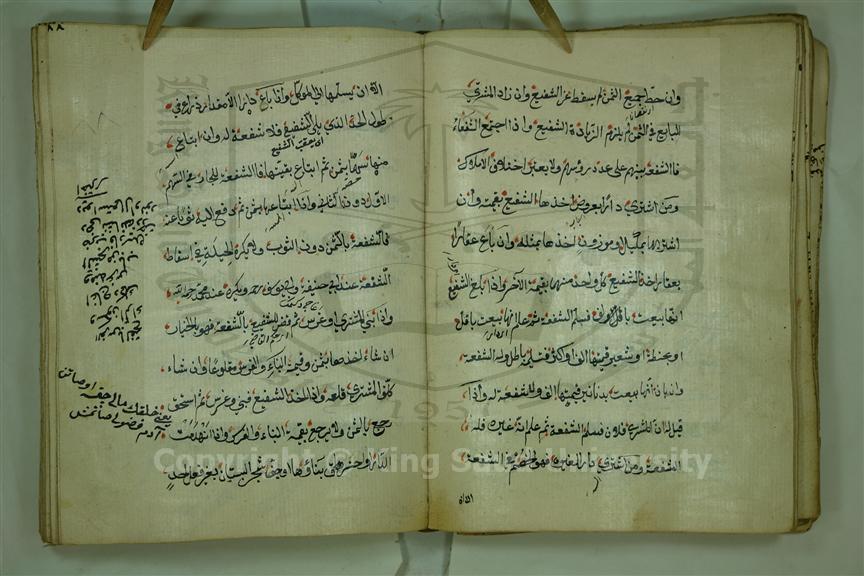 وان حط جميع الثمن لم يسقط عن الشفيع وان زاد المشتري
للبايع في الثمن لم يلزم الزيادة الشفيع واذا اجتمع الشفعاء
فالشفعة بينهم على عدد رؤسهم ولا يعتبر اختلاف الاملاك
ومن اشترى دارا بعروض اخذها الشفيع بقيمته وان
اشتراها بمكيل او موزون اخذها بمثله وان باع عقارا
بعقار اخذ الشفيع كل واحد منهما بقيمة الآخر واذا بلغ الشفيع
انها بيعت بالف فسلم الشفعة ثم علم انها بيعت باقل
او بحنطة او شعير قيمتها الف او اكثر فتسليمه باطل وله الشفعة
وان بان انها بيعت بدنانير قيمتها الف فلا شفعة له واذا
قيل له ان المشتري فلان فسلم الشفعة ثم علم انه غيره فله
الشفعة ومن اشترى دارا لغيره فهو الخصم في الشفعة
الا ان
الا ان يسلمها الى الموكل واذا باع دارا الا مقدار ذراع في
طول الحد الذي يلي الشفيع فلا شفعة له وان ابتاع
منها سهما بثمن ثم ابتاع بقيتها فالشفعة للجار في السهم
الاول دون الثاني واذا ابتاعها بثمن ثم دفع اليه ثوبا عنه
فالشفعة بالثمن دون الثوب ولا يكره الحيلة في اسقاط
الشفعة عند ابي حنيفة وابي يوسف رحمه ويكره عند محمد رحمه الله
واذا بنى المشتري او غرس ثم قضى للشفيع بالشفعة فهو بالخيار
ان شاء اخذها بثمن وقيمة البناء والغرس مقلوعا وان شاء
كلف المشتري قلعه واذا اخذ الشفيع فبنى وغرس ثم استحق
رجع بالثمن ولا يرجع بقيمة البناء والغرس واذا انهدمت
الدار او احترق بناؤها او جف شجر البستان بغير فعل احد
Copyright © King Saud University
1957